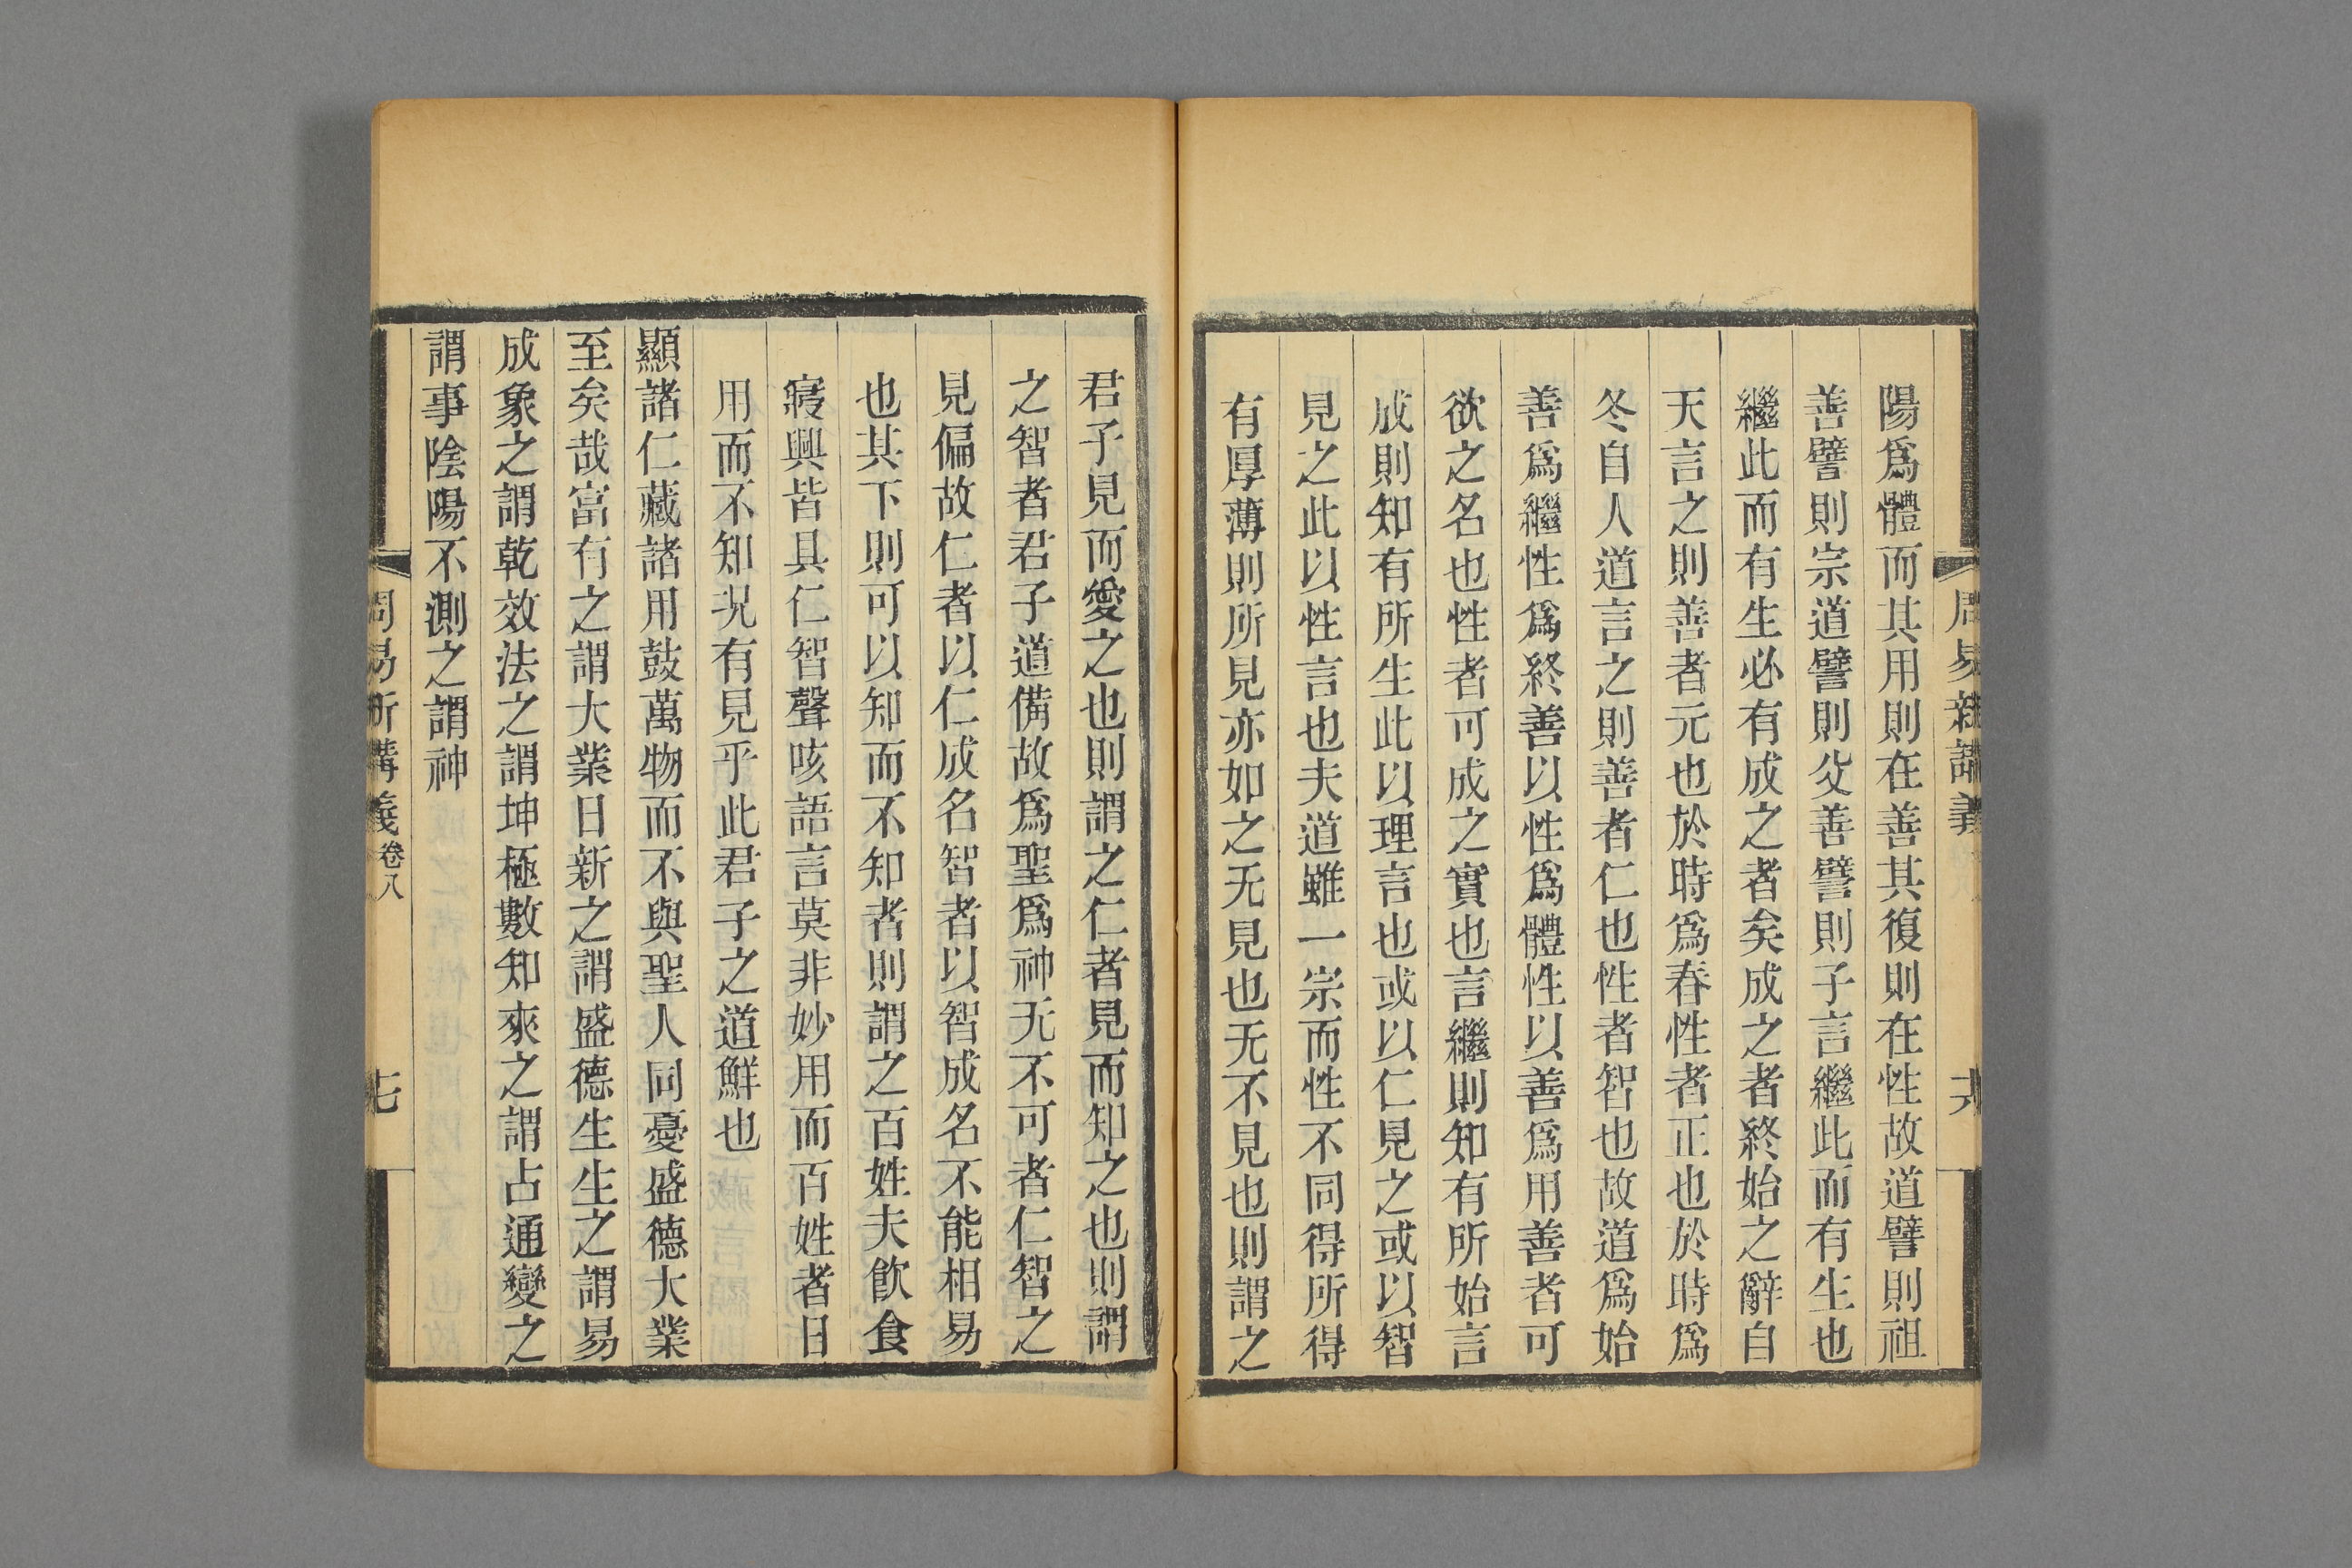 周易新講義
六
陽爲體而其用則在善其復則在性故道譬則祖
善譬則宗道譬則父善譬則子言繼此而有生也
繼此而有生必有成之者矣成之者終始之辭自
天言之則善者元也於時爲春性者正也於時爲
冬自人道言之則善者仁也性者智也故道爲始
善爲繼性爲終善以性爲體性以善爲用善者可
欲之名也性者可成之實也言繼則知有所始言
成則知有所生此以理言也或以仁見之或以智
見之此以性言也夫道雖一宗而性不同得所得
有厚薄則所見亦如之无見也无不見也則謂之
君子見而愛之也則謂之仁者見而知之也則謂
之智者君子道備故爲聖爲神无不可者仁智之
見偏故仁者以仁成名智者以智成名不能相易
也其下則可以知而不知者則謂之百姓夫飮食
寢興皆具仁智聲咳語言莫非妙用而百姓者日
用而不知况有見乎此君子之道鮮也
顯諸仁藏諸用鼓萬物而不與聖人同憂盛德大業
至矣哉富有之謂大業日新之謂盛德生生之謂易
成象之謂乾效法之謂坤極數知來之謂占通變之
謂事陰陽不測之謂神
周易新講義 卷八
七